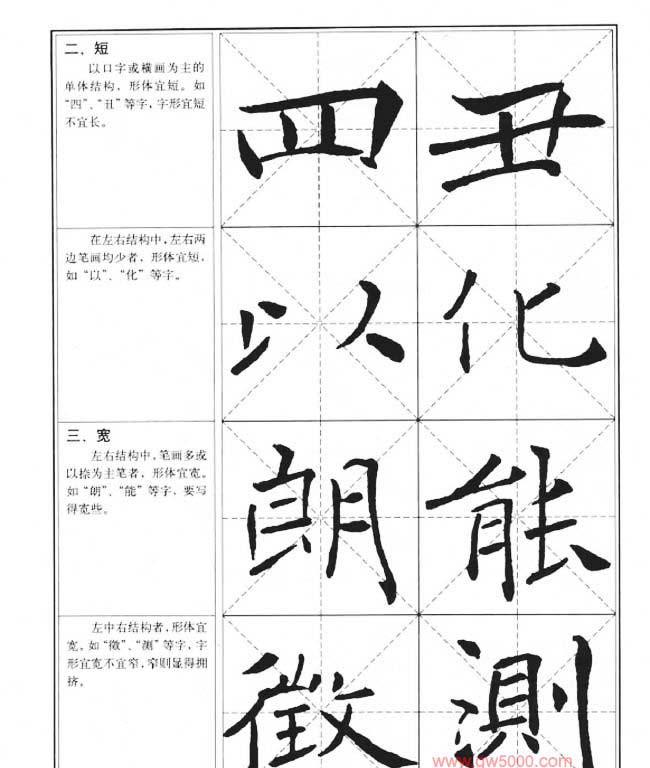 二、短
以口字或横画为主的
单体结构，形体宜短。如
“四”、“丑”等字，字形宜短
不宜长。
四 丑
在左右结构中，左右两
边笔画均少者，形体宜短，
如“以”、“化”等字。
以 化
三、宽
左右结构中，笔画多或
以捺为主笔者，形体宜宽。
如“朗”、“能”等字，要写
得宽些。
朗 能
左中右结构者，形体宜
宽。如“徵”、“测”等字，字
形宜宽不宜窄，窄则显得拥
挤。
徵 測
www.qw5000.com